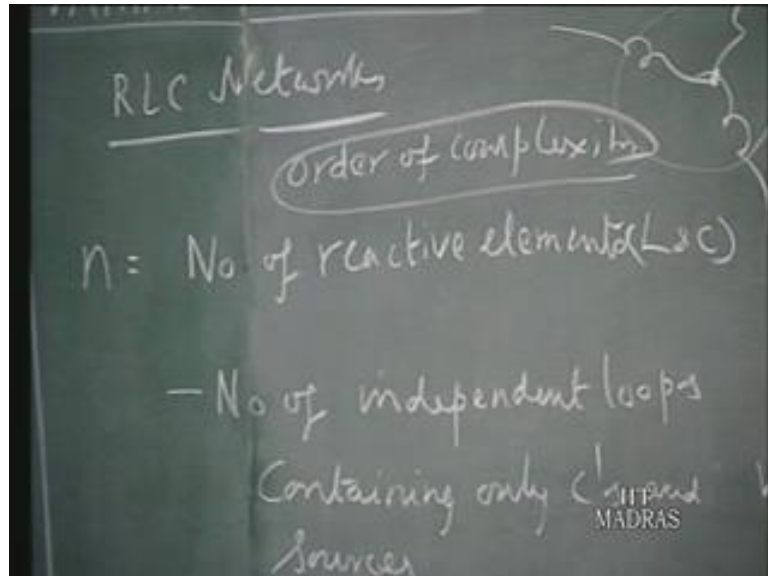 RLC Networks
order of complexity
n = No of reactive elements (L & C)
- No of independent loops
Containing only C's and
sources
IIT
MADRAS